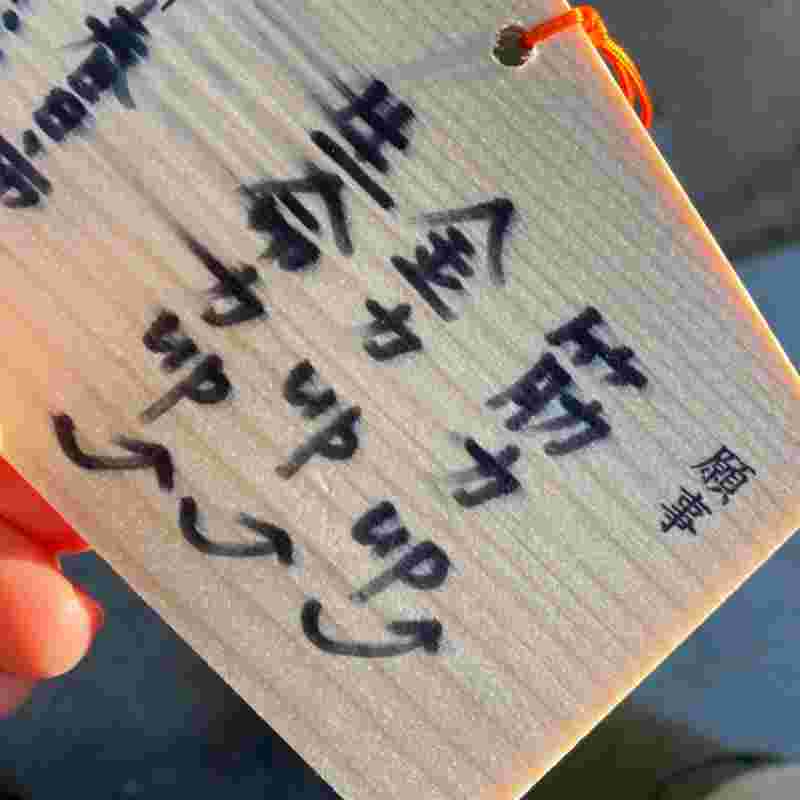 願事
筋力up⤴
金力up⤴
生命力up⤴